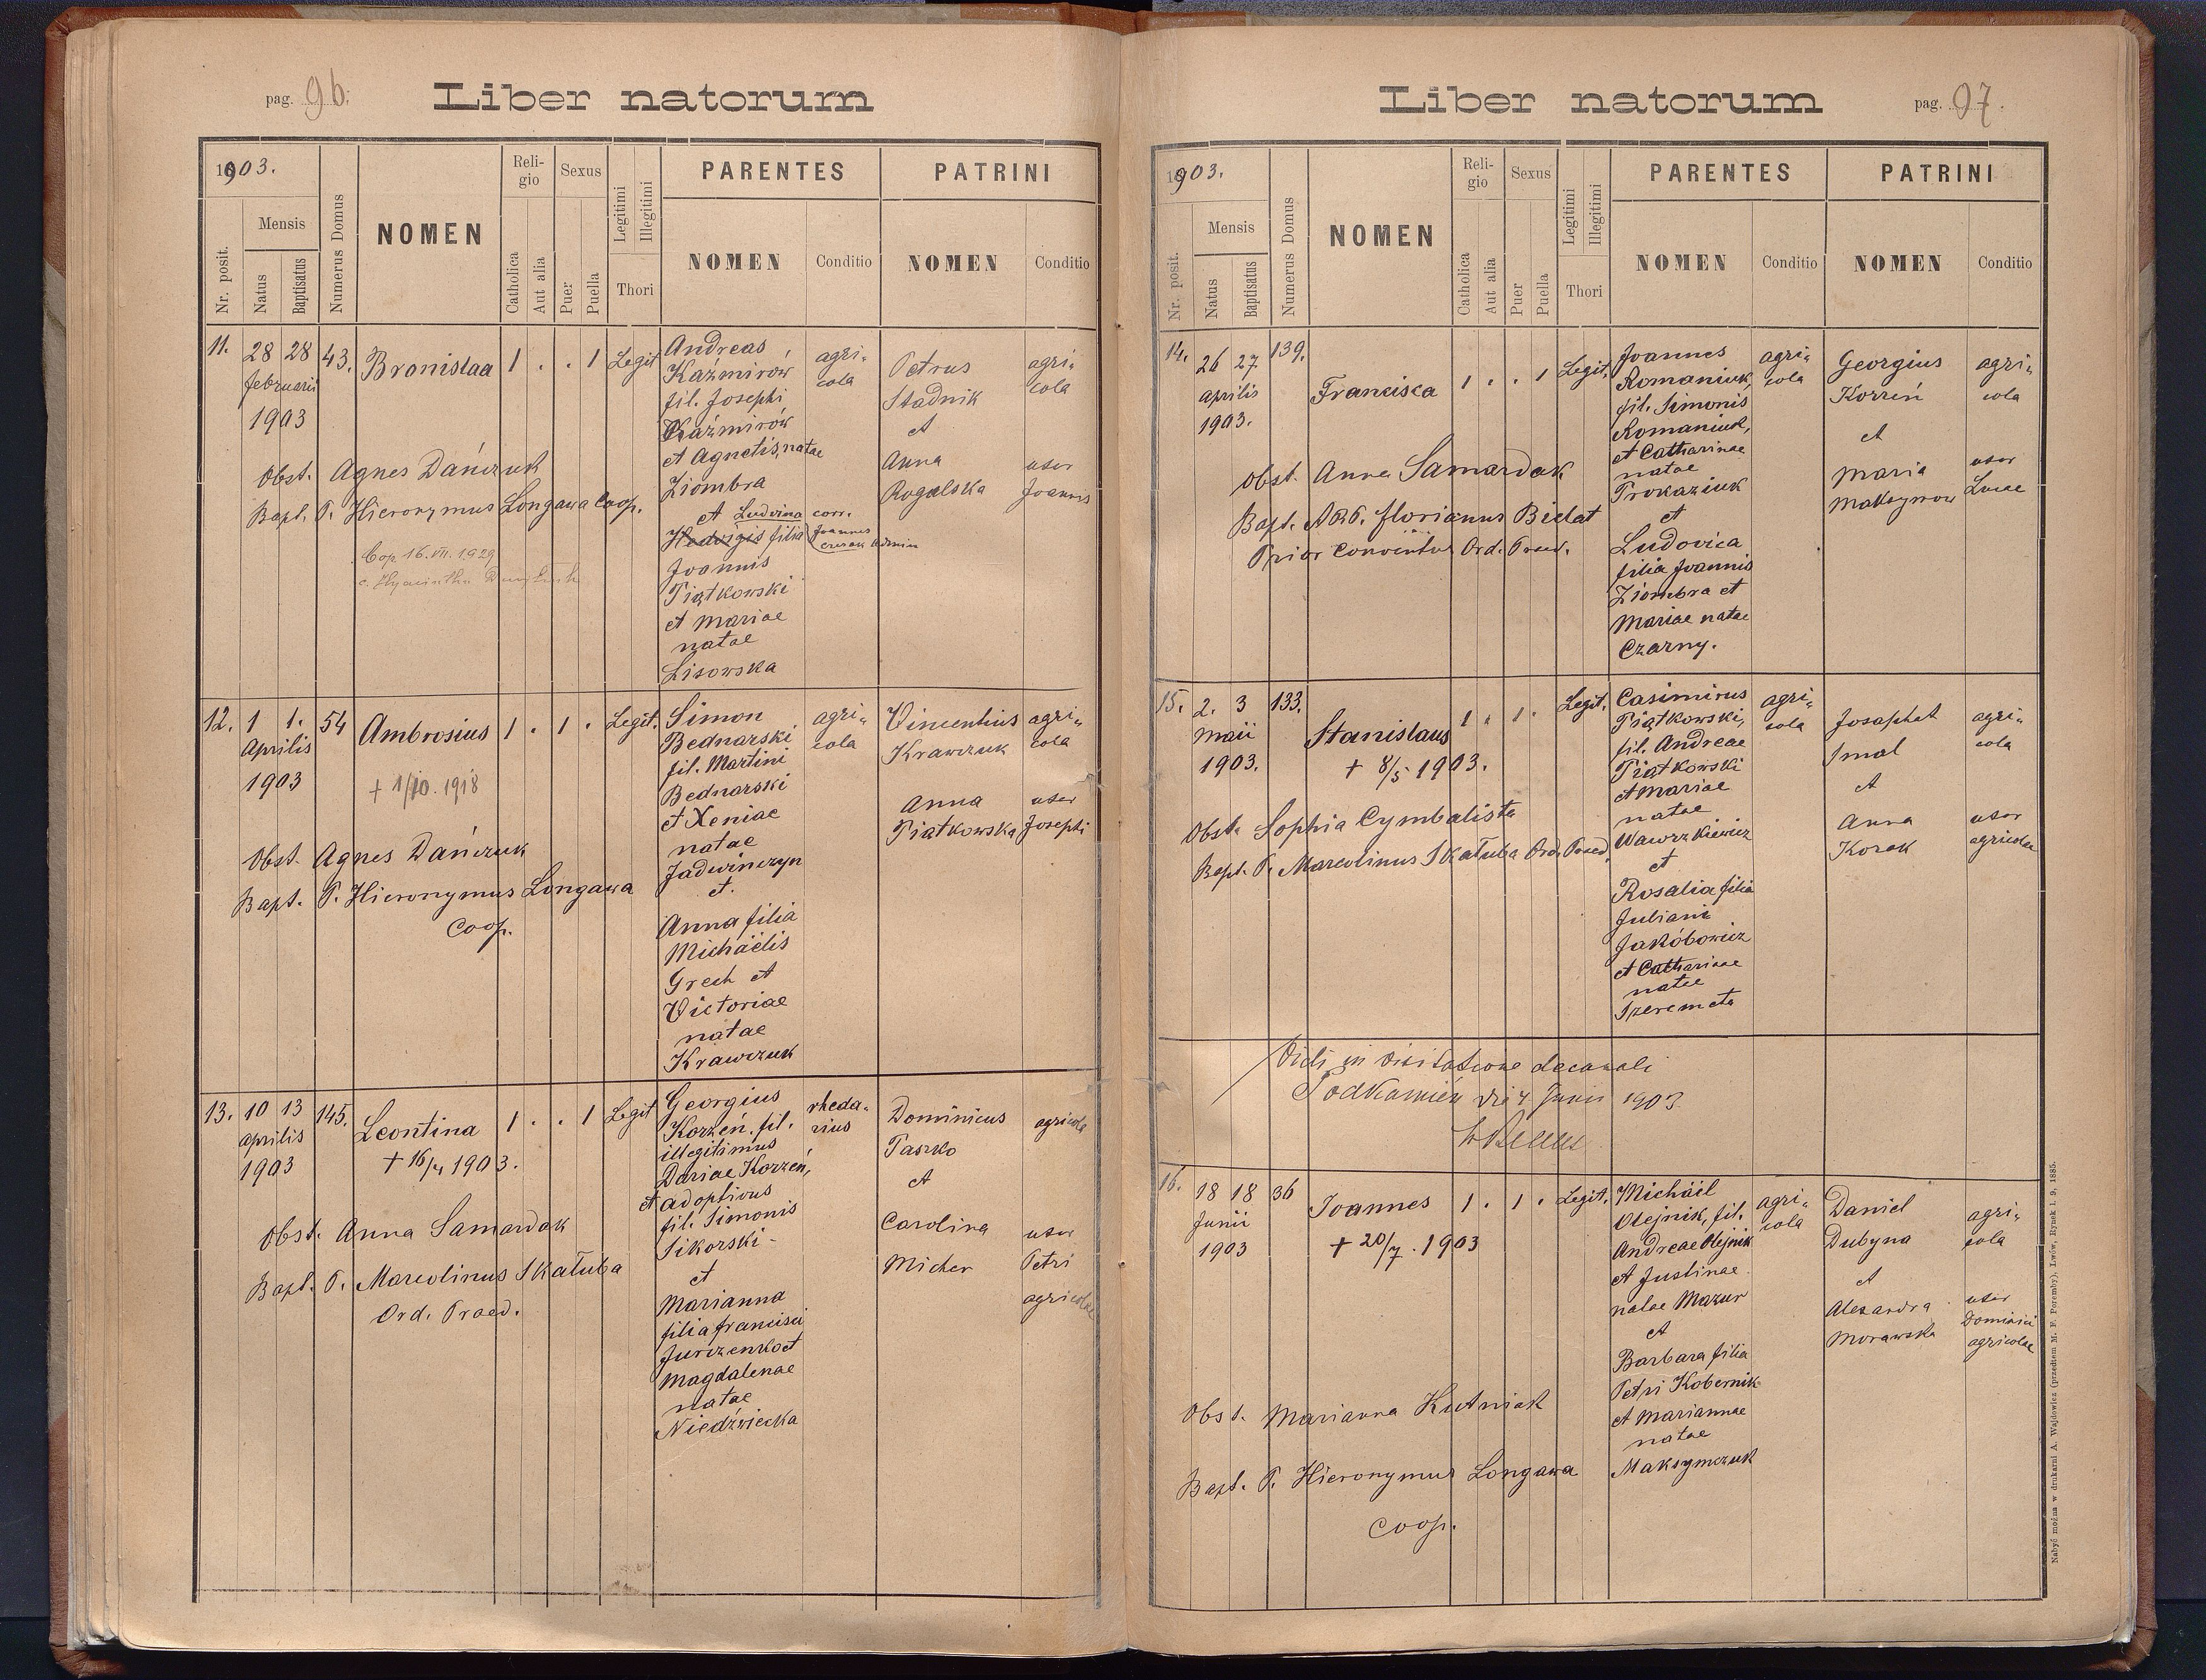 pag. 96.
Liber natorum
1903.
Nr. posit.
Mensis
Natus
Baptisatus
Numerus Domus
NOMEN
Religio
Catholica
Aut alia
Sexus
Puer
Puella
Legitimi
Illegitimi
Thori
PARENTES
NOMEN
Conditio
PATRINI
NOMEN
Conditio
11. 28 28 43. Bronislaa 1 . . 1 Legit
februarii
1903
Obst. Agnes Dańczuk
Bapt. P. Hieronymus Longawa Coop.
Cop 16. VII. 1929
Andreas
Kaźmirów
fil. Josephi
Kaźmirów
et Agnetis, natae
Ziombra
et Ludvina corr.
Hedvigis filia Joannes
Joannis
Piątkowski
et Mariae
natae
Lisowska
agri-
cola
Petrus
Stadnik
et
Anna
Rogalska
agri-
cola
uxor
Joannis
12. 1 1. 54 Ambrosius 1 . 1 . Legit.
Aprilis
1903
+ 1/10. 1918
Obst. Agnes Dańczuk
Bapt. P. Hieronymus Longawa
Coop.
Simon
Bednarski
fil. Martini
Bednarski
et Xeniae
natae
Jadwińczyn
et.
Anna filia
Michaëlis
Grech et
Victoriae
natae
Krawczuk
agri-
cola
Vincentius
Krawczuk
Anna
Piatkowska
agri-
cola
uxor
Josephi
13. 10 13 145. Leontina 1 . . 1 Legit
Aprilis
1903
+ 16/4 1903.
Obst. Anna Samardak
Bapt. P. Marcolinus Skałuba
Ord. Praed.
Georgius
Korzeń. fil.
illegitimus
Dariae Korzeń,
et adoptivus
fil. Simonis
Sikorski -
et
Marianna
filia francisci
Jurczenko et
Magdalenae
natae
Niedźwiecka
rheda-
rius
Dominicus
Paszko
et
Carolina
Micher
agricola
uxor
Petri
agricolae
Liber natorum
pag. 97.
1903.
Nr. posit.
Mensis
Natus
Baptisatus
Numerus Domus
NOMEN
Religio
Catholica
Aut alia
Sexus
Puer
Puella
Legitimi
Illegitimi
Thori
PARENTES
NOMEN
Conditio
PATRINI
NOMEN
Conditio
14. 26 27 139. Franciska 1 . . 1 Legit.
Aprilis
1903.
Obst. Anna Samardak
Bapt. ARP. florianus Bielat
Prior Conventus Ord. Praed.
Joannes
Romaniuk,
fil. Simonis
Romaniuk,
et Catharinae
natae
Prokaziuk
et
Ludovica
filia Joannis
Ziombra et
Mariae natae
Czarny.
agri-
cola
Georgius
Korzeń
et
Maria
Maksymow
agri-
cola
uxor
Lucae
15. 2. 3 133. Stanislaus 1 . 1 . Legit.
Maii
1903.
+ 8/5 1903.
Obst. Sophia Cymbalista
Bapt. P. Marcolinus Skałuba Ord. Praed.
Casimirus
Piątkowski,
fil. Andreae
Piątkowski
et Mariae
natae
Wawrzkiewicz
et
Rosalia filia
Juliani
Jakóbowicz
et Catharinae
natae
Szeremeta
agri-
cola
Josaphat
Smal
et
Anna
Kozak
agri-
cola
uxor
agricolae
Vidi in visitatione decanali
Podkamień die 4 Junii 1903
16. 18 18 36 Joannes 1 . 1 . Legit.
Junii
1903
+ 20/7. 1903
Obst. Marianna Kutniak
Bapt. P. Hieronymus Longawa
Coop.
Michäil
Olejnik, fil.
Andreae Olejnik
et Justinae
natae Mazur
et
Barbara filia
Petri Kobernik
et Mariannae
natae
Maksymczuk
agri-
cola
Daniel
Dubyna
et
Alexandra
Morawska
agri-
cola
uxor
Dominici
agricolae
Nabyć można w drukarni A. Wajdowicz (przedtem M. F. Poremby), Lwów, Rynek l. 9, 1885.